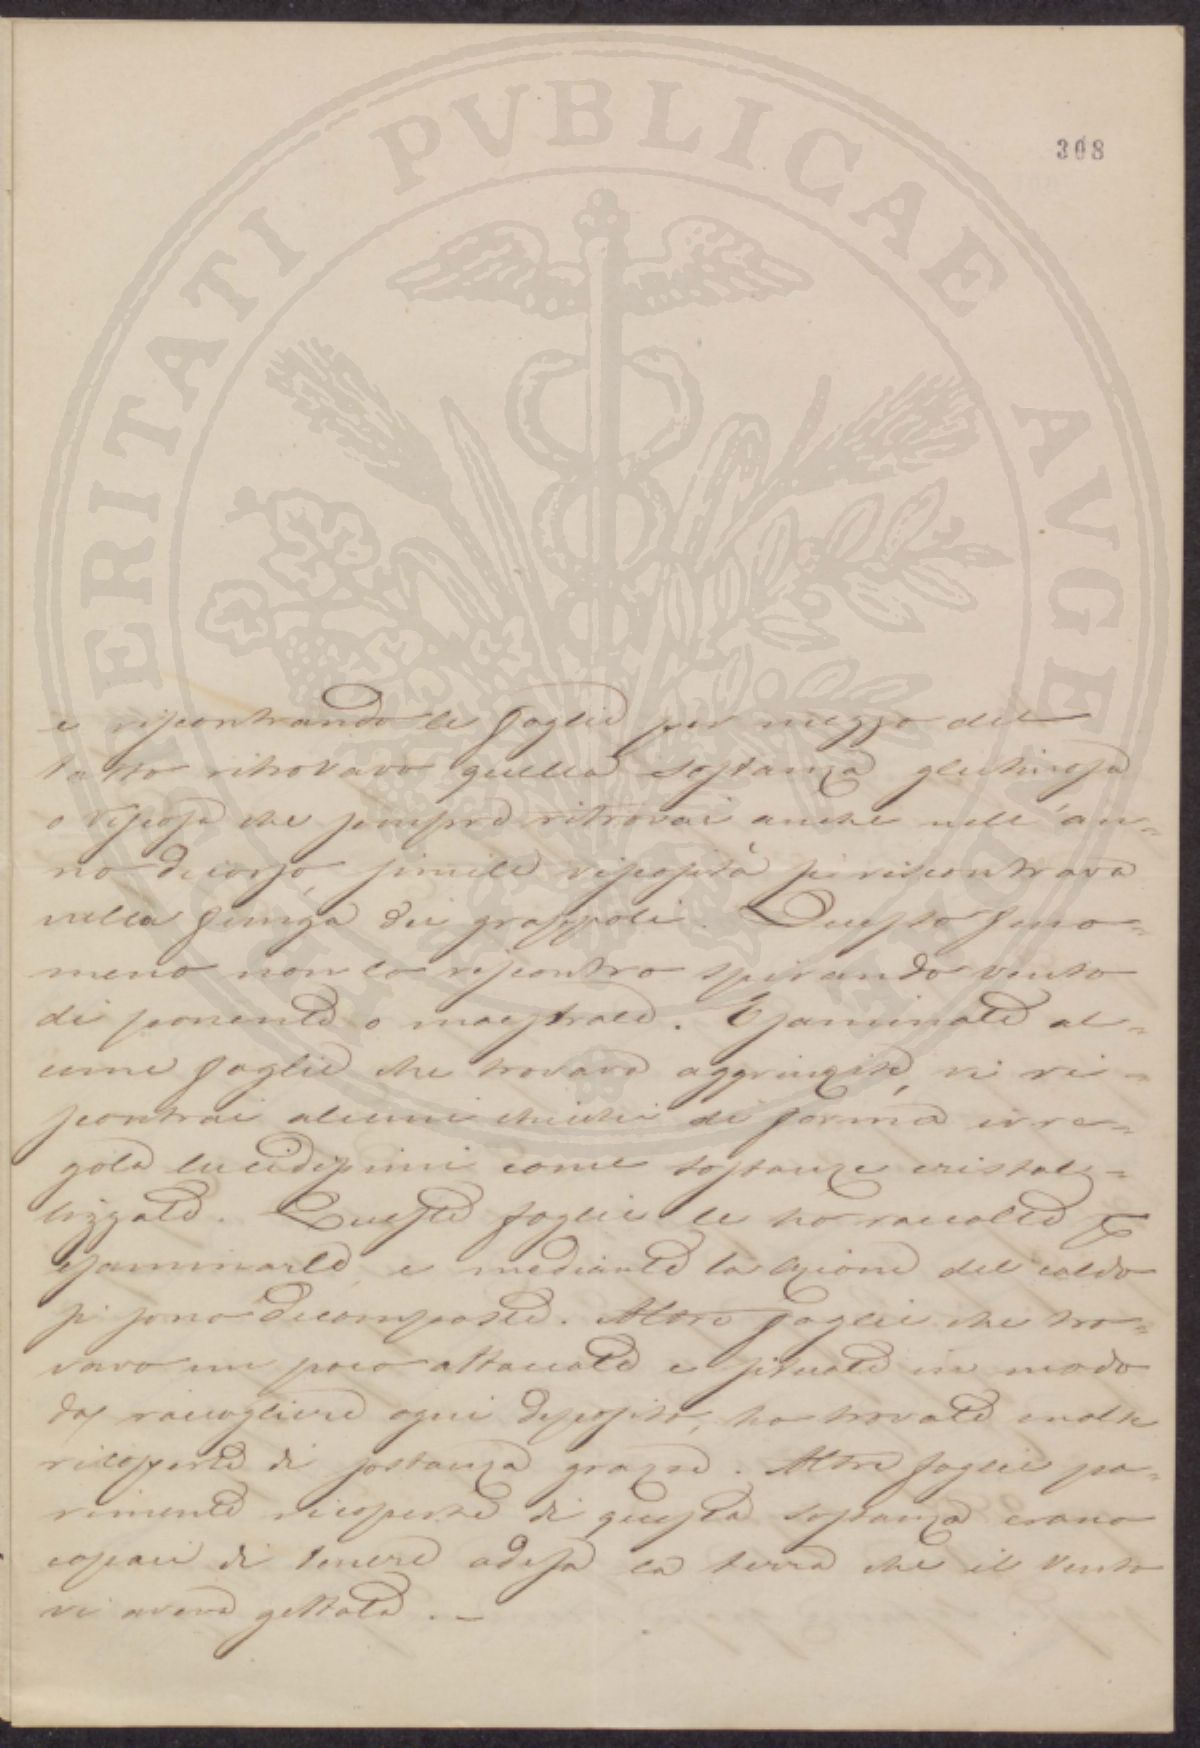 308
PROSPERITATI PVBLICAE AVGENDAE
e riscontrando le foglie per mezzo del
tatto ritrovavo quella sostanza glutinosa
o viscosa che sempre ritrovai anche nell'an=
no decorso, simile viscosità si riscontrava
nella spunga dei grappoli. Questo feno=
meno non lo riscontro spirando vento
di ponente o maestrale. Esaminate al=
cune foglie che trovavo aggrinzite, vi ri=
scontrai alcuni chicchi di forma irre=
gola lucidissimi come sostanze cristal=
lizzate. Queste foglie le ho raccolte p
esaminarle, e mediante la azione del caldo
si sono decomposte. Altre foglie che tro=
vavo un poco attaccate e situate in modo
da raccogliere ogni deposito, ho trovate molte
ricoperte di sostanza grazse. Altre foglie pa=
rimente ricoperte di questa sostanza erano
capaci di tenere adesa la terra che il vento
vi aveva gettata. —